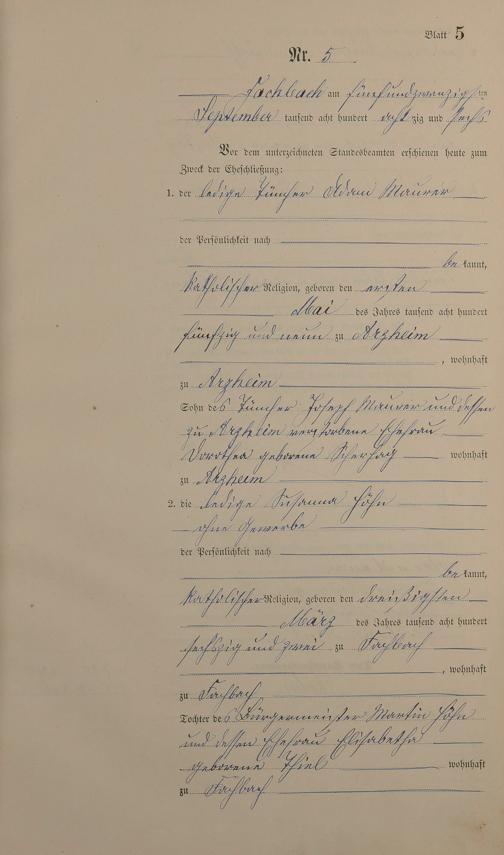 Blatt 5
Nr. 5
Fachbach am fünfundzwanzigsten
September tausend acht hundert achtzig und sechs
Vor dem unterzeichneten Standesbeamten erschienen heute zum
Zweck der Eheschließung:
1. der ledige Tüncher Adam Maurer
der Persönlichkeit nach
be kannt,
katholischer Religion, geboren den ersten
Mai des Jahres tausend acht hundert
fünfzig und neun zu Arzheim
, wohnhaft
zu Arzheim
Sohn des Tüncher Joseph Maurer und dessen
zu Arzheim verstorbene Ehefrau
Dorothea geborene Scherhag wohnhaft
zu Arzheim
2. die ledige Susanna Höhn
ohne Gewerbe
der Persönlichkeit nach
be kannt,
katholischer Religion, geboren den dreißigsten
März des Jahres tausend acht hundert
sechszig und zwei zu Fachbach
, wohnhaft
zu Fachbach
Tochter des Bürgermeister Martin Höhn
und dessen Ehefrau Elisabetha
geborene Thiel wohnhaft
zu Fachbach